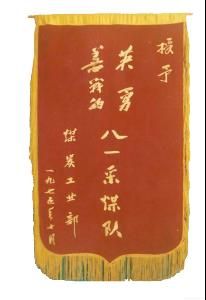 授予
英勇
善战的
八一采煤队
煤炭工业部
一九七五年七月